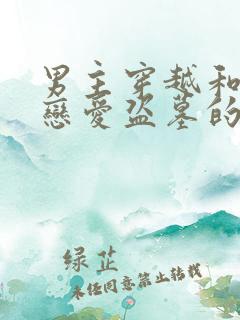 男主穿越和
戀愛盜墓的
绿芷
未经同意禁止转载